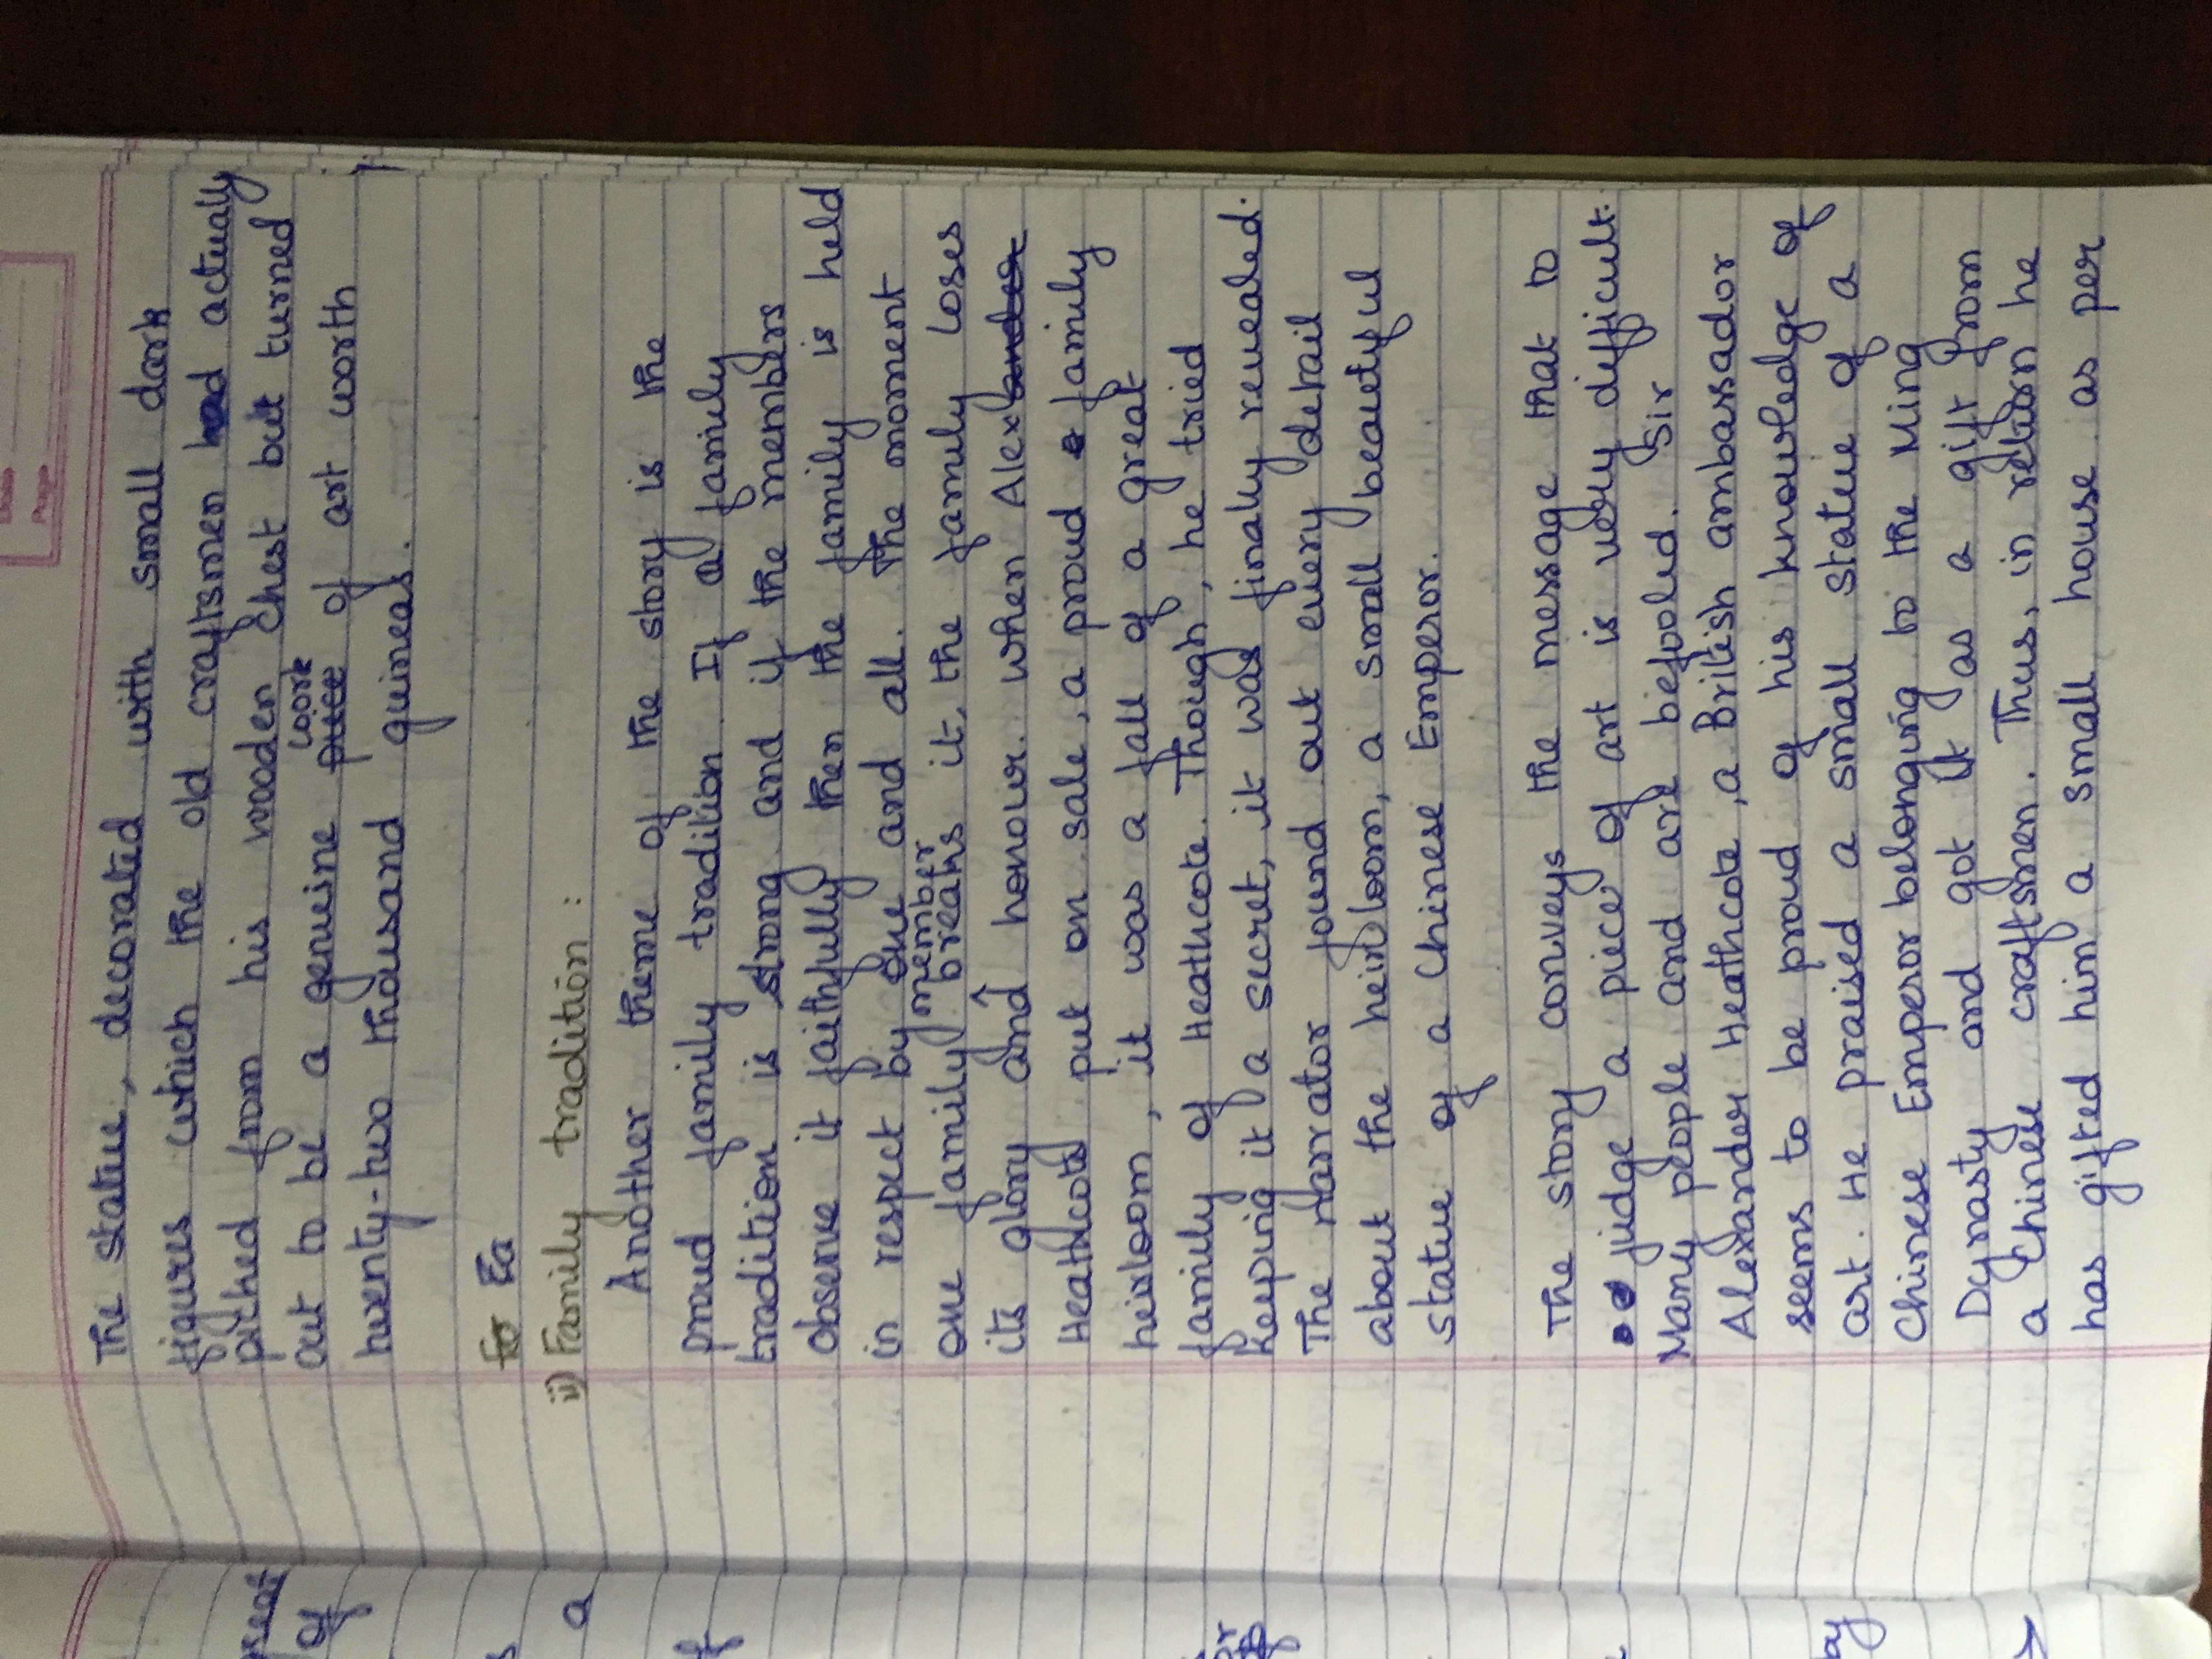 Date
Page
The statue, decorated with small dark
figures which the old craftsmen had actually
picked from his wooden chest but turned
out to be a genuine piece work of art worth
twenty-two thousand guineas.
Fo Ea
ii) Family tradition :
Another theme of the story is the
proud family tradition. If a family
tradition is strong and if the members
observe it faithfully then the family is held
in respect by one and all. The moment
one family member breaks it, the family loses
its glory and honour. When Alexander
Heathcote put on sale, a proud family
heirloom, it was a fall of a great
family of Heathcote. Though, he tried
keeping it a secret, it was finally revealed.
The narrator found out every detail
about the heirloom, a small beautiful
statue of a Chinese Emperor.
The story conveys the message that to
judge a piece of art is very difficult.
Many people and are befooled. Sir
Alexander Heathcote, a British ambassador
seems to be proud of his knowledge of
art. He praised a small statue of a
Chinese Emperor belonging to the Ming
Dynasty and got it as a gift from
a Chinese craftsmen. Thus, in return he
has gifted him a small house as per
reat
of
s
a
f
or
by